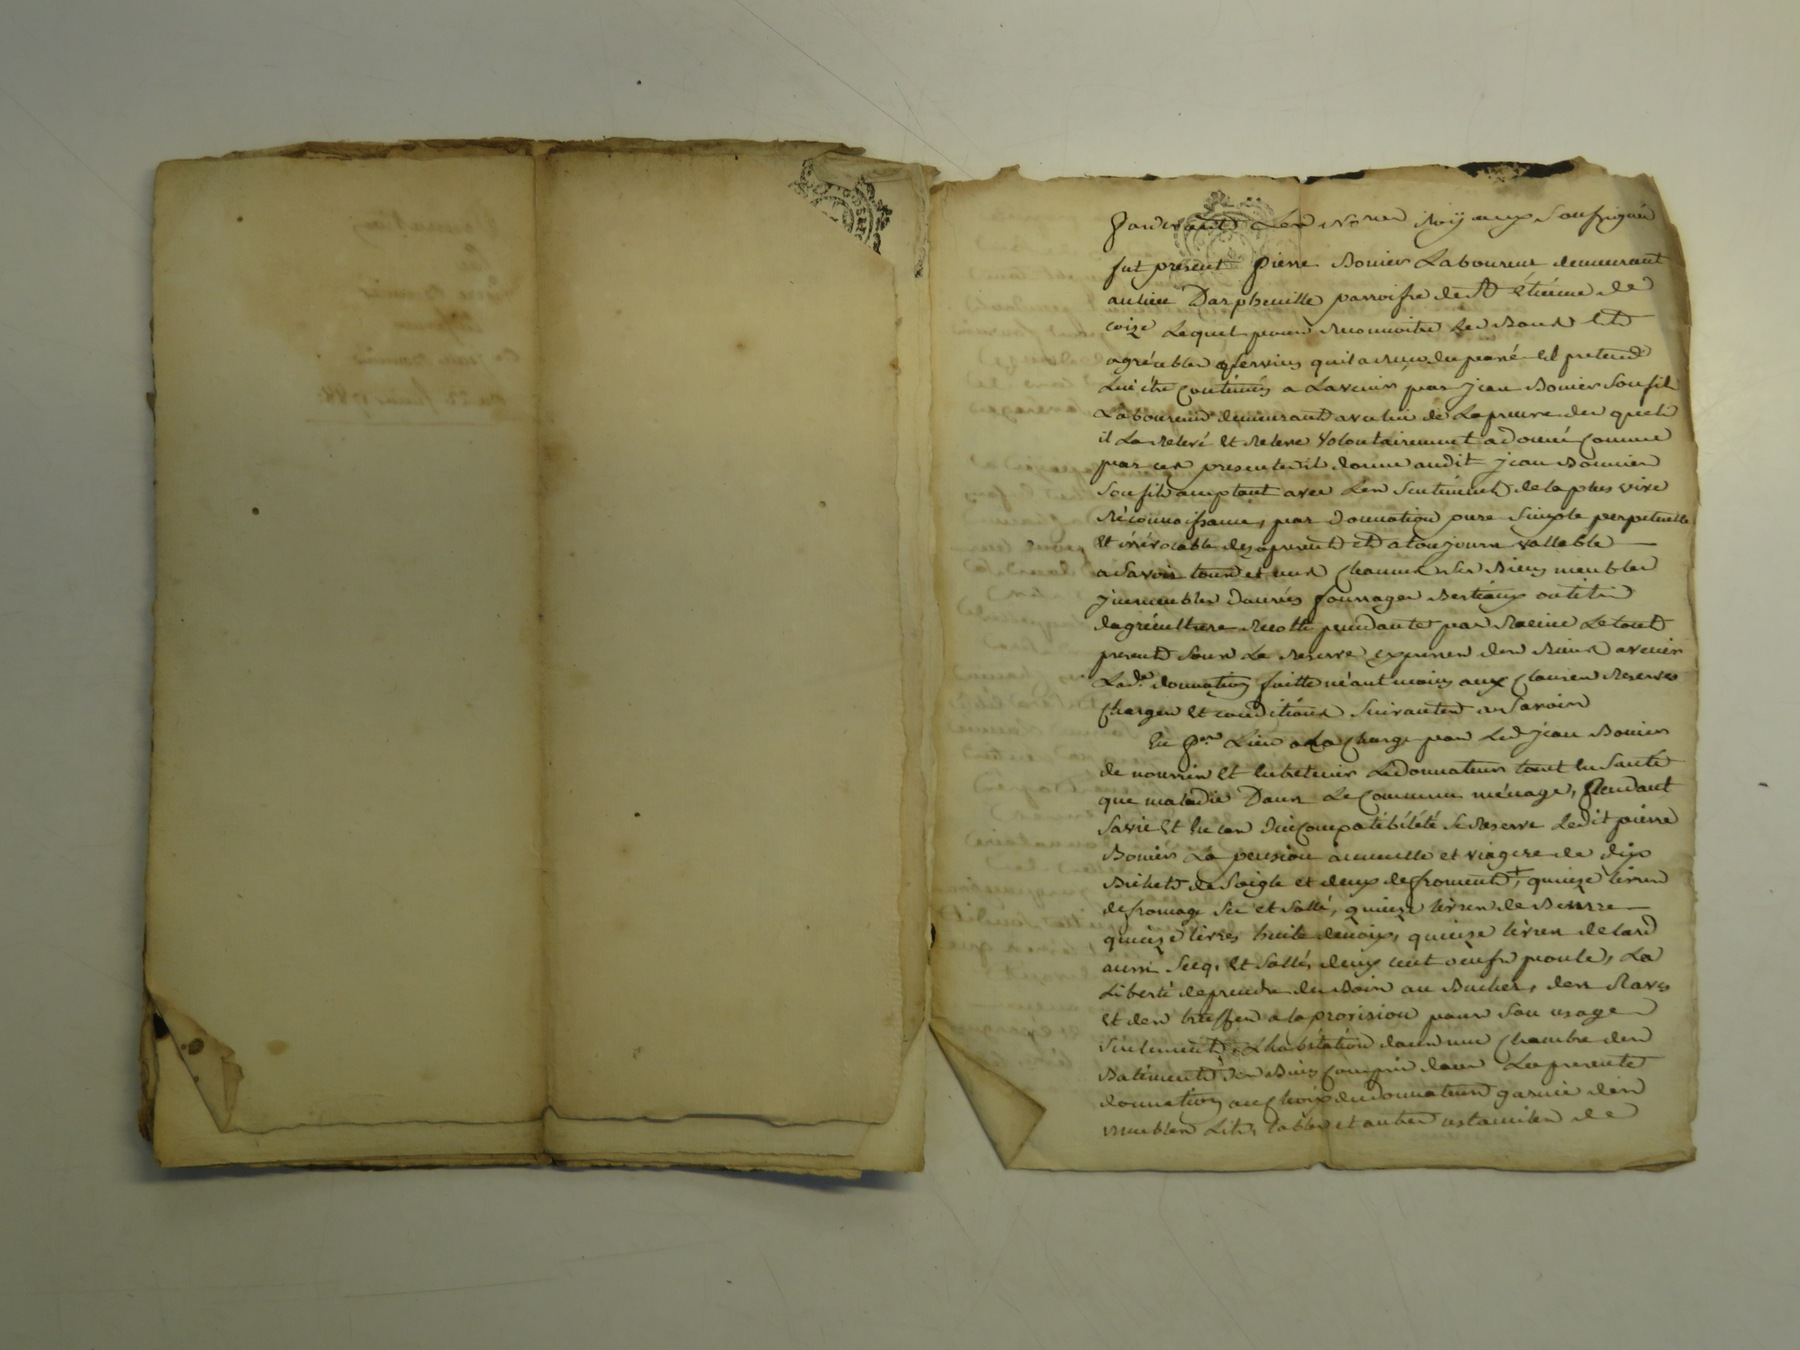 Pardevant Les Nres Royaux Soussignés
fut present pierre Bonier Laboureur demeurant
au lieu Darpheuille parroisse de St Etienne de
coize Lequel pour reconnoitre Les Bons Et
agréables services qu'il a reçu du passé Et pretend
Lui être Continués a Lavenir, par jean Bonier Son fils
Laboureur demeurant avec lui de La preuve des quels
il La relevé Et releve Volontairement a donné Comme
par ces presentes il donne audit jean Bonnier
Son fils acceptant avec Les Sentiments de la plus vive
réconnoissance, par donnation pure Simple perpetuelle
Et irrévocable des apresent et a toujours vallable —
a Savoir tous et uns Chacuns Ses Biens meubles
jmmeubles danrés fourrages Bestiaux outils
dagriculture recolte pendante par Racine Le tout
present Sous La reserve expresse des Biens avenir
Lade donnation faitte néant moins aux Clauses Reserves
Charges Et conditions Suivantes a Savoir
En Per Lieu a La Charge par Led jean Bonier
de nourrir Et Entretenir Le donnateur tant En Santé
que maladie Dans Le Commun ménage, Pendant
Sa vie Et En cas Dincompatibilité Se Reserve Ledit pierre
Bonier La pension annuelle et viagere de dix
Bichets de Soigle et deux de froment +, quinze livres
de fromage Sec et Sallé, quinze livres de Beurre —
quinze livres huile de noix, quinze livres de lard
aussi Secq, Et Sallé, deux cent oeufs poule, La
Liberté de prendre du Bois au Bucher, des Raves
Et des truffes a la provision pour Son usage
Seulement, Lhabitation dans une Chambre des
Batiments des Biens Compris dans La presente
donnation au Choix du donnateur garnie des
meubles Lit, tables et autres ustanciles de